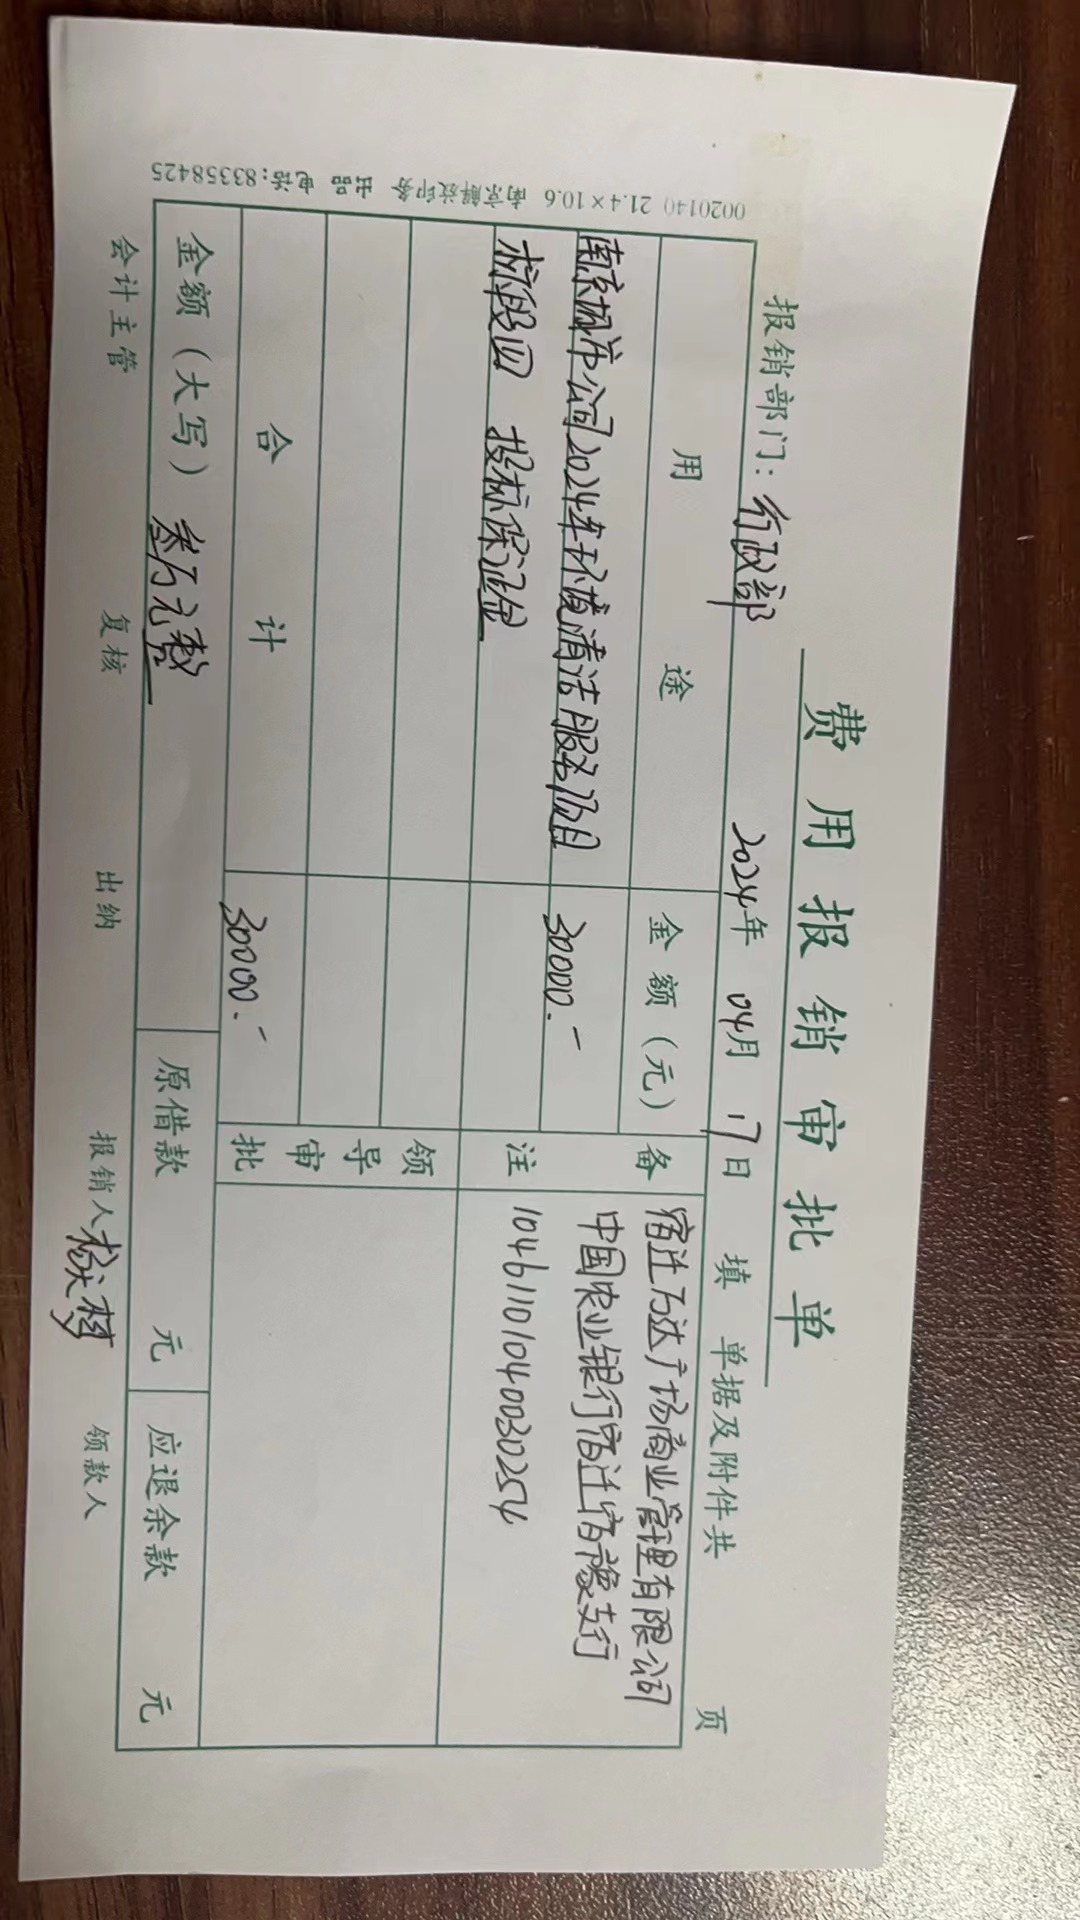 费用报销审批单
报销部门：行政部 2024年 04月 17日 填 单据及附件共 页
用途 金额（元） 备注
南京城市公司2024年环境清洁服务项目 30000.-
标段四 投标保证金
宿迁万达广场商业管理有限公司
中国农业银行宿迁宿豫支行
10461101040030254
领导审批
合计 30000.-
金额（大写）叁万元整 原借款 元 应退余款 元
会计主管 复核 出纳 报销人 领款人
0020140 21.4×10.6 南京解放印务 出品 电话:83358425